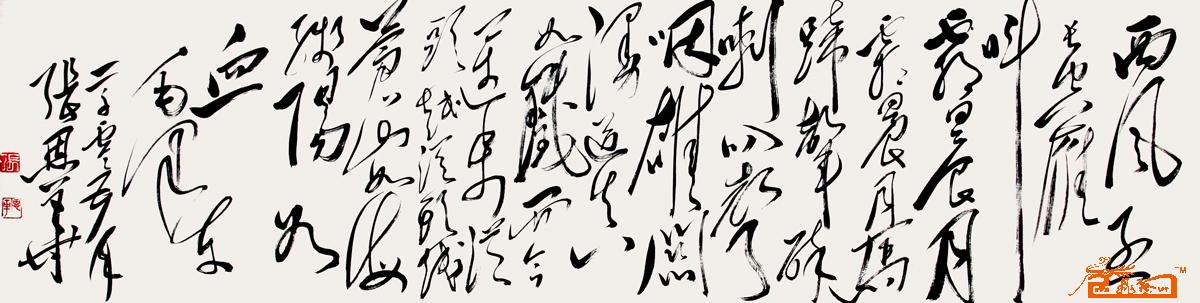 西风烈
长空雁
叫
霜晨月
霜晨月马
蹄声碎
喇叭声
咽雄关
漫道真
如铁而今
迈步从
头越从头越
苍山如海
残阳如
血
毛泽东
年月
张思书